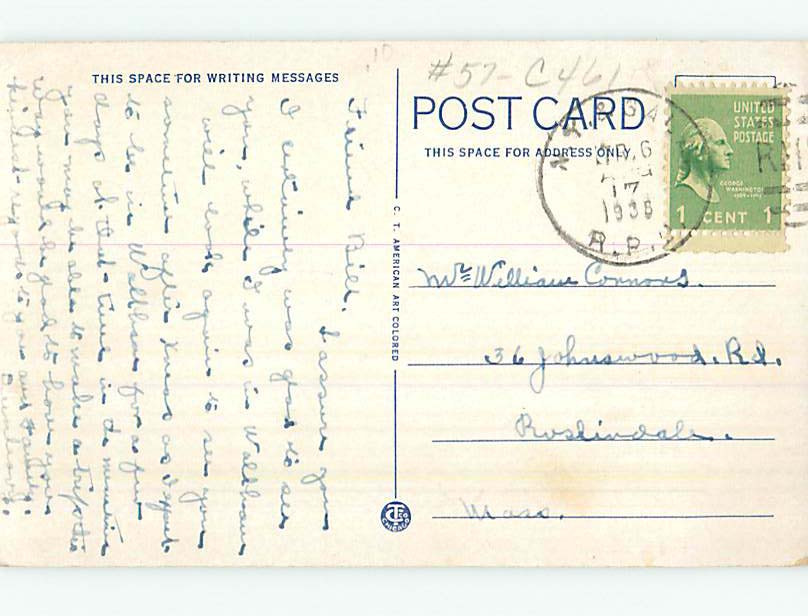 #57-C461
THIS SPACE FOR WRITING MESSAGES
POST CARD
THIS SPACE FOR ADDRESS ONLY
UNITED
STATES
POSTAGE
GEORGE
WASHINGTON
1 CENT 1
17
R.P.O.
C. T. AMERICAN ART COLORED
CHICAGO
Mr William Connors.
36 Johnswood. Rd.
Roslindale.
Mass.
Friend Bill. I assure you
I certainly was glad to see
you, while I was in Waltham
will look again to see you
sometime after Xmas as I expect
to be in Waltham for a few
days at that time in the meantime
you may be able to make a trip to
would be glad to have you
kindest regards to you and family.